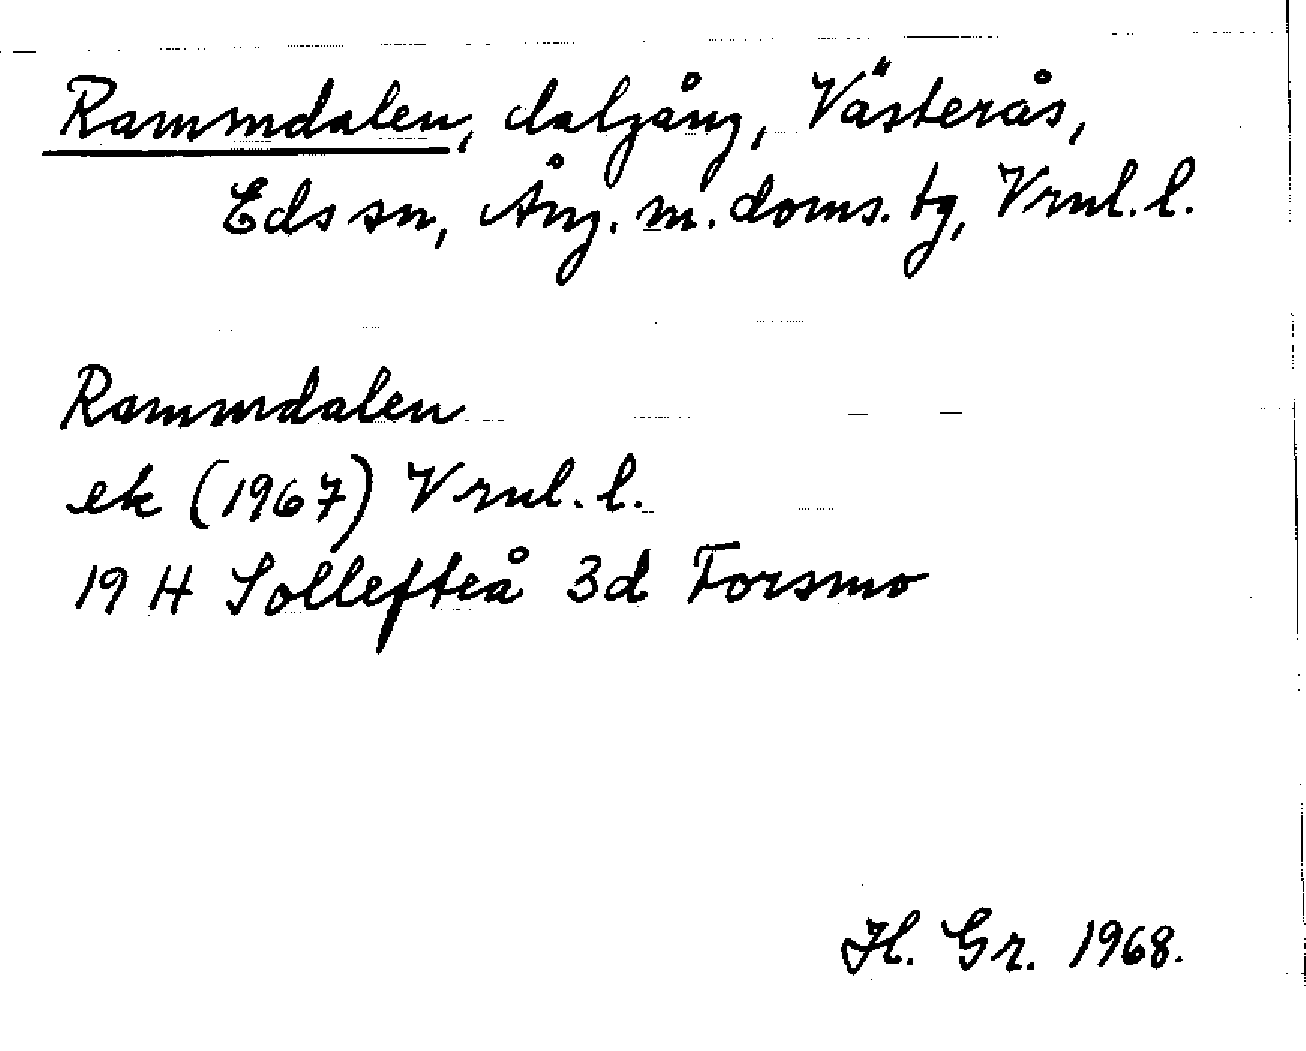 Rammdalen, dalgång, Västerås,
Eds sn, Ång. m. doms. tg, Vrnl. l.
Rammdalen
ek (1967) Vrnl. l.
19 H Sollefteå 3d Forsmo
H. Gr. 1968.